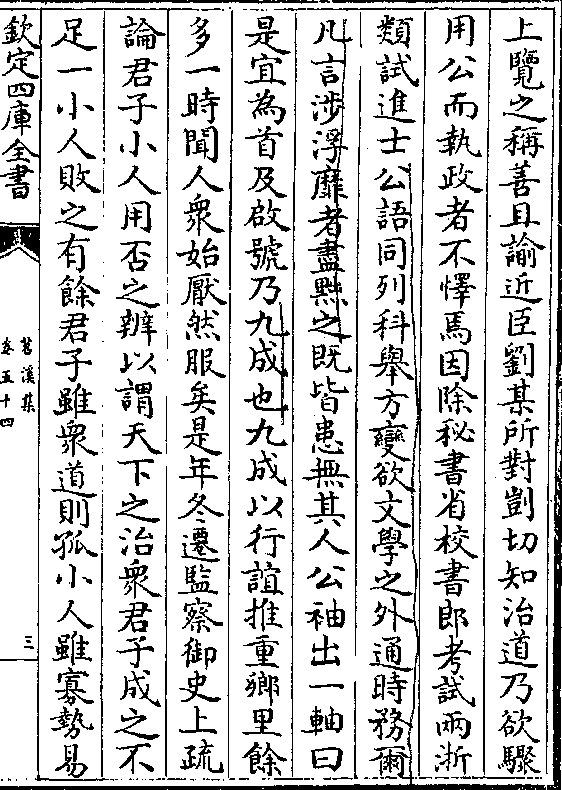 上覽之稱善且諭近臣劉某所對剴切知治道乃欲驟
用公而執政者不懌焉因除秘書省校書郎考試兩浙
類試進士公語同列科舉方變欲文學之外通時務爾
凡言涉浮靡者盡黜之既皆患無其人公袖出一軸曰
是宜為首及啟號乃九成也九成以行誼推重鄉里餘
多一時聞人衆始厭然服矣是年冬遷監察御史上疏
論君子小人用否之辨以謂天下之治衆君子成之不
足一小人敗之有餘君子雖衆道則孤小人雖寡勢易
欽定四庫全書
苕溪集
卷五十四
三